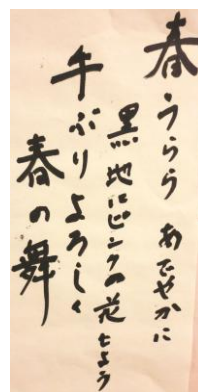 春うらら あでやかに
黒地にピンクの花もよう
手ぶりよろしく
春の舞